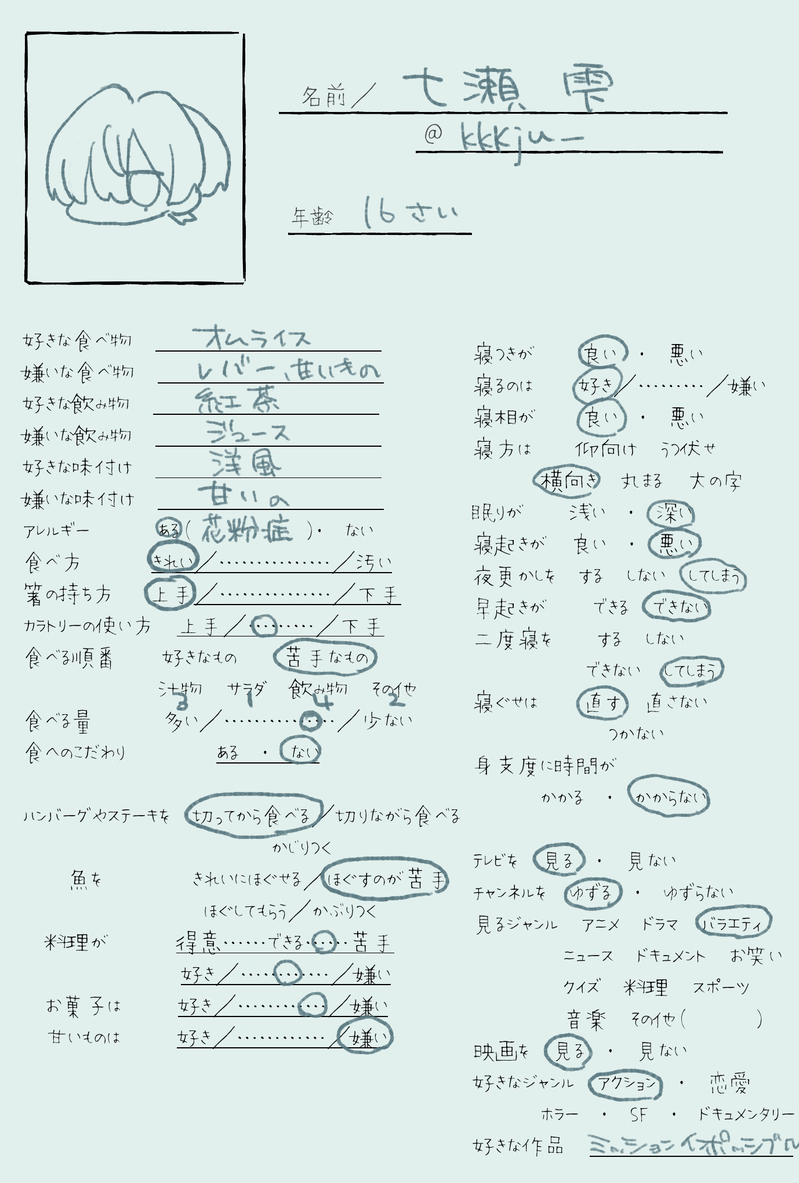 名前／ 七瀬 雫
@ kkkju_
年齢 16さい
好きな食べ物 オムライス
嫌いな食べ物 レバー、甘いもの
好きな飲み物 紅茶
嫌いな飲み物 ジュース
好きな味付け 洋風
嫌いな味付け 甘いの
アレルギー ある(花粉症)・ ない
食べ方 きれい／……………／汚い
箸の持ち方 上手／……………／下手
カラトリーの使い方 上手／………／下手
食べる順番 好きなもの 苦手なもの
汁物 サラダ 飲み物 その他
3 1 4 2
食べる量 多い／……………／少ない
食へのこだわり ある ・ ない
ハンバーグやステーキを 切ってから食べる／切りながら食べる
かじりつく
魚を きれいにほぐせる／ほぐすのが苦手
ほぐしてもらう／かぶりつく
料理が 得意……できる……苦手
好き／…………／嫌い
お菓子は 好き／…………／嫌い
甘いものは 好き／…………／嫌い
寝つきが 良い ・ 悪い
寝るのは 好き／………／嫌い
寝相が 良い ・ 悪い
寝方は 仰向け うつ伏せ
横向き 丸まる 大の字
眠りが 浅い ・ 深い
寝起きが 良い ・ 悪い
夜更かしを する しない してしまう
早起きが できる できない
二度寝を する しない
できない してしまう
寝ぐせは 直す 直さない
つかない
身支度に時間が
かかる ・ かからない
テレビを 見る ・ 見ない
チャンネルを ゆずる ・ ゆずらない
見るジャンル アニメ ドラマ バラエティ
ニュース ドキュメント お笑い
クイズ 料理 スポーツ
音楽 その他( )
映画を 見る ・ 見ない
好きなジャンル アクション ・ 恋愛
ホラー ・ SF ・ ドキュメンタリー
好きな作品 ミッションインポッシブル